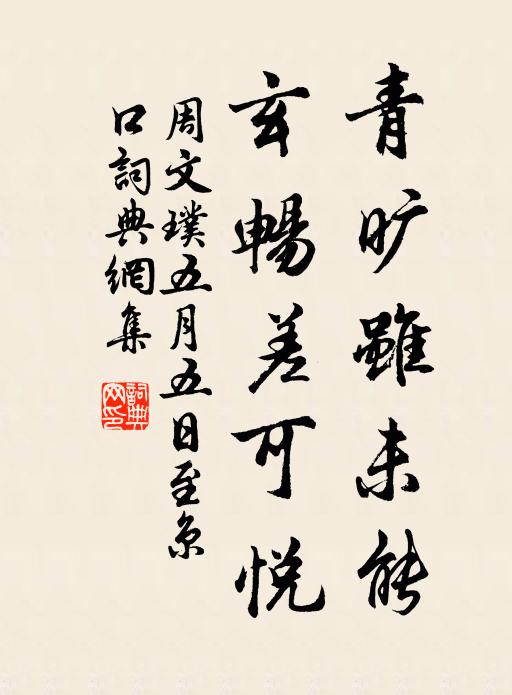 青旷雖未能
玄暢差可悅
周文璞五月五日至京
口詞典網集
詞典网印